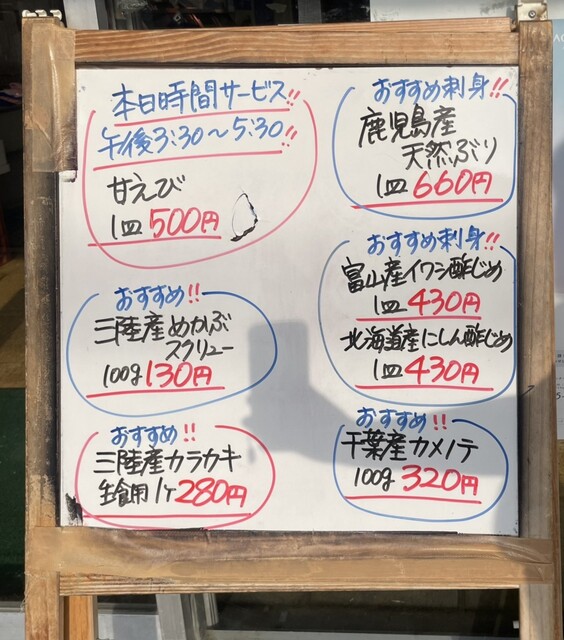 本日時間サービス!!
午後3:30〜5:30!!
甘えび
1皿500円
おすすめ!!
三陸産めかぶ
スクリュー
100g130円
おすすめ!!
三陸産カラカキ
生食用1ケ280円
おすすめ刺身!!
鹿児島産
天然ぶり
1皿660円
おすすめ刺身!!
富山産イワシ酢じめ
1皿430円
北海道産にしん酢じめ
1皿430円
おすすめ!!
千葉産カメノテ
100g320円